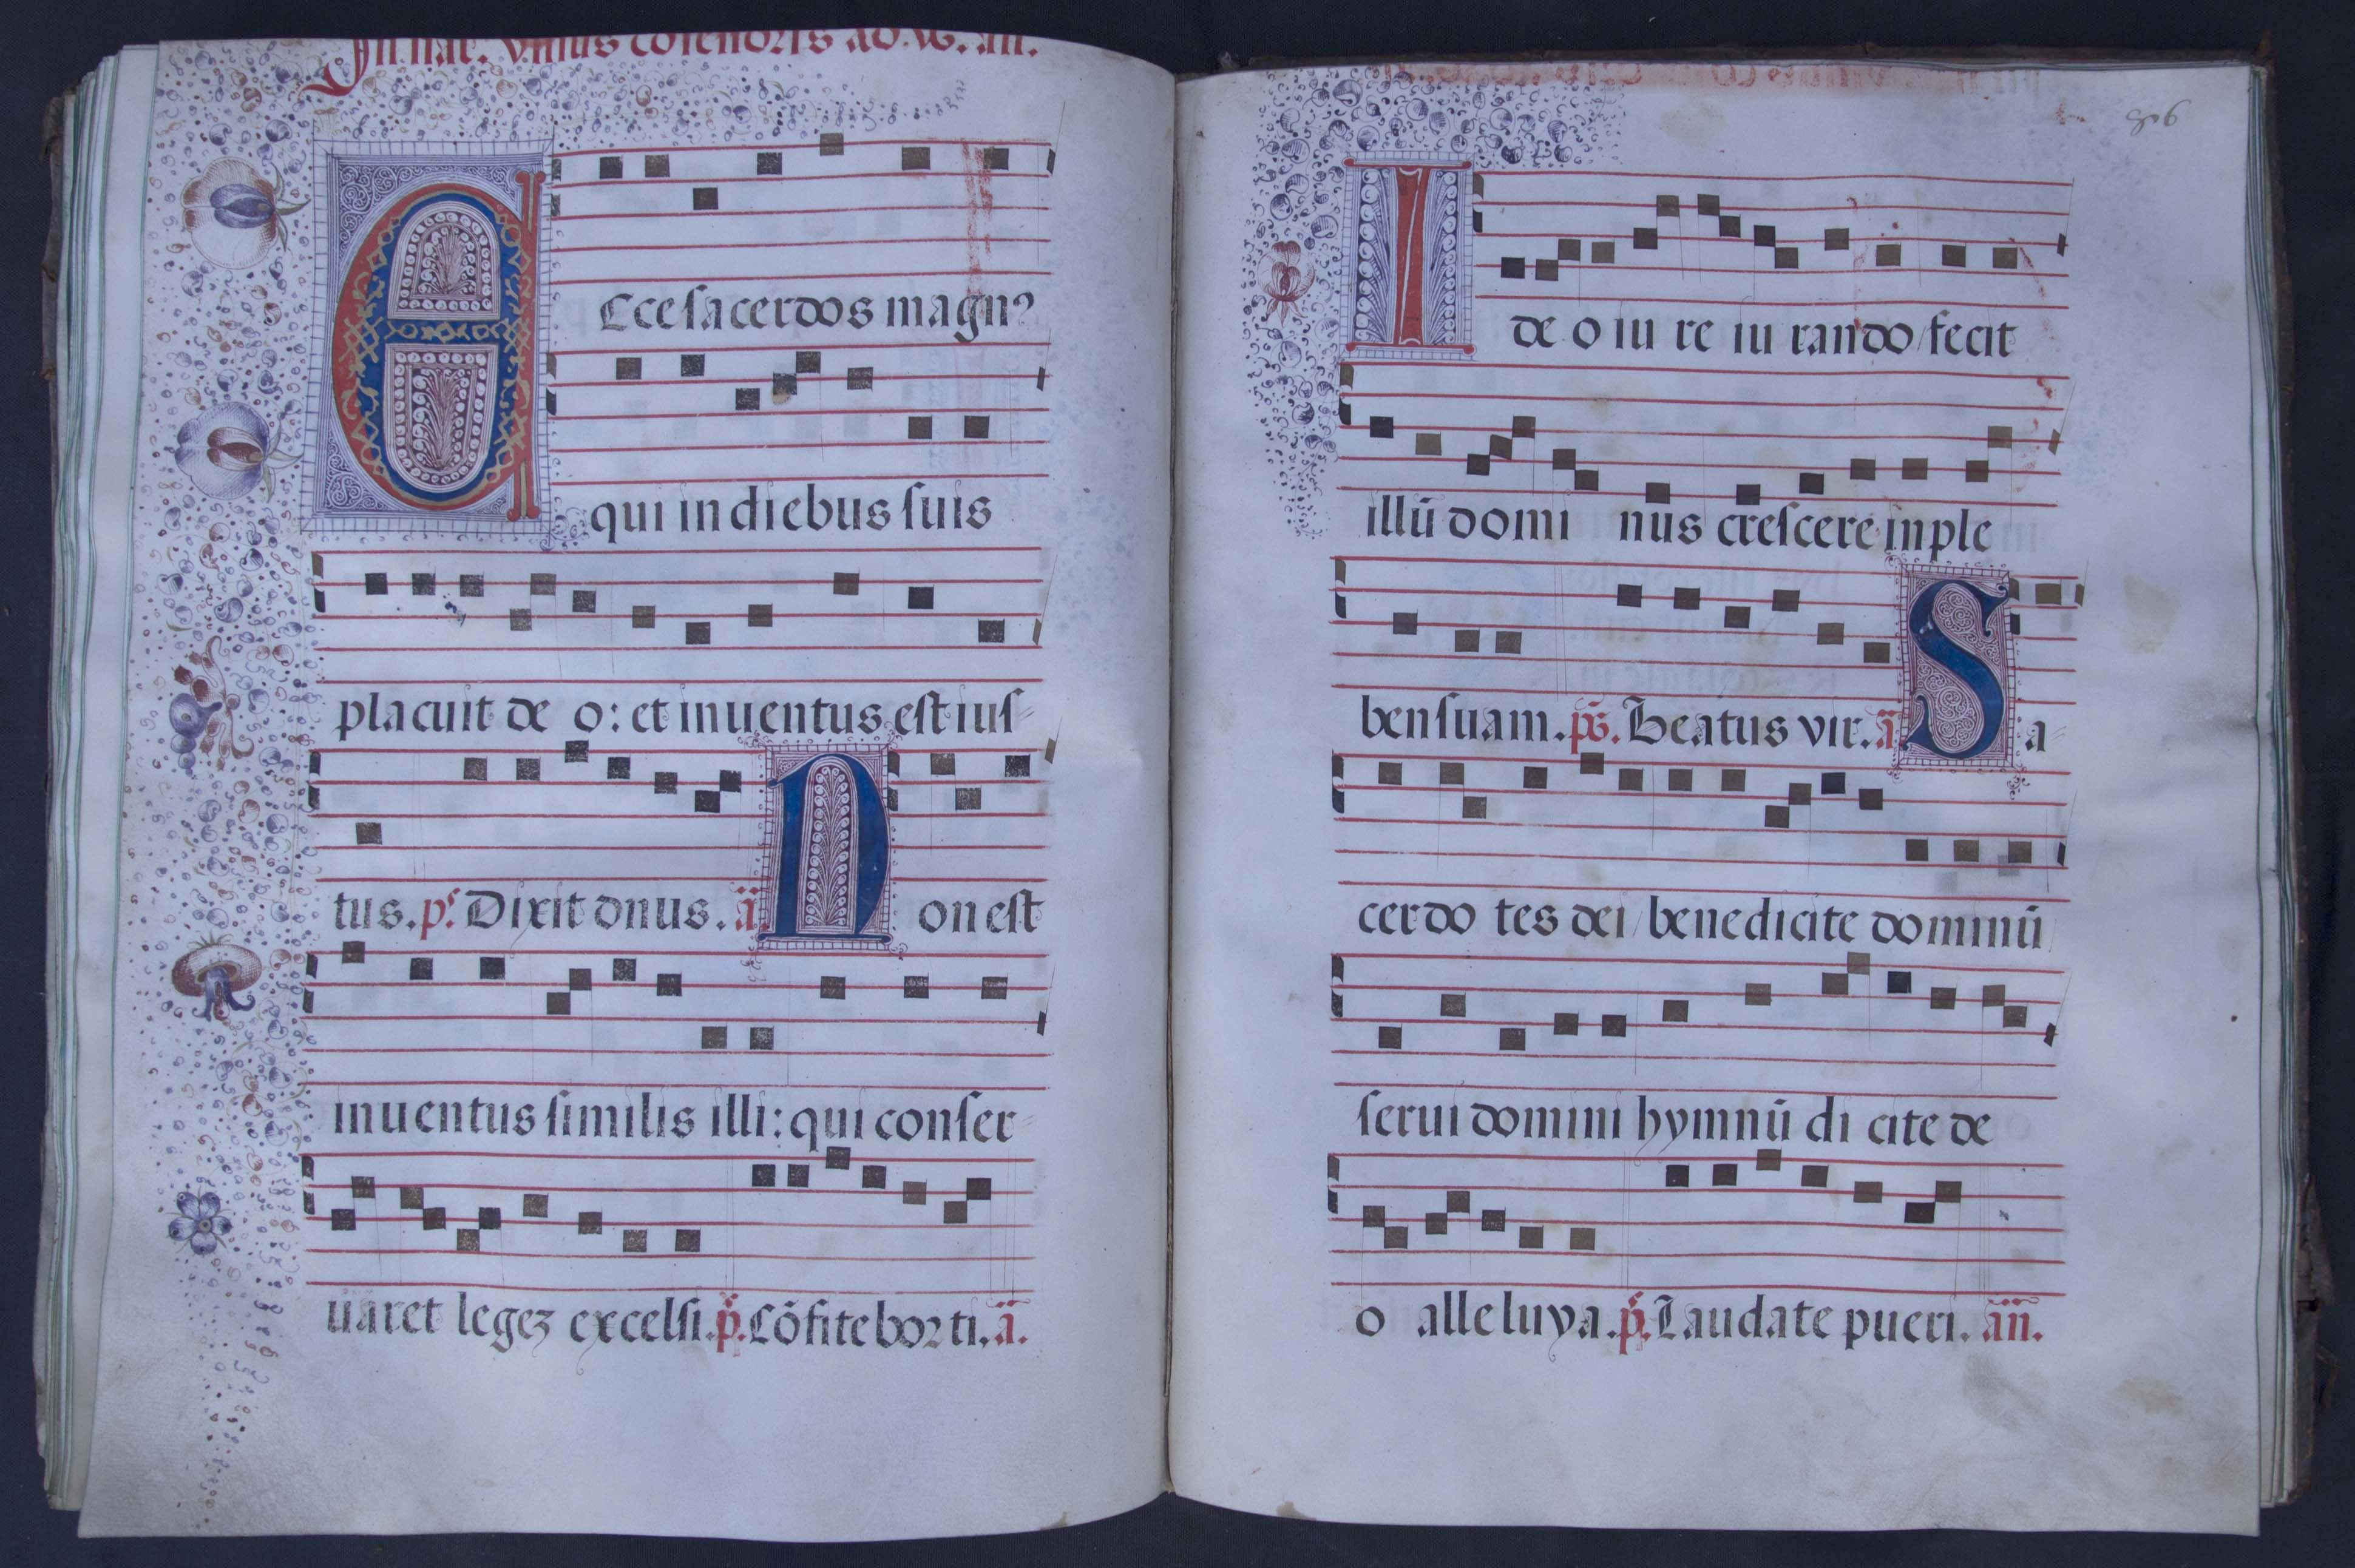 In nat. vnius cõfessoris ad. vѣ. an.
Ecce sacerdos magnꝰ
qui in diebus suis
placuit de o: et inuentus est ius=
tus. ps. Dixit dnus. ã. Non est
inuentus similis illi: qui conser=
uaret legeʒ excelsi. p̃. Cõfitebor ti. ã.
86
I de o iu re iu rando fecit
illũ domi nus crescere in ple
ben suam. ps. Beatus vir. ã. Sa-
cerdo tes dei benedicite dominũ
serui domini hymnũ di cite de
o alleluya. p̃. Laudate pueri. añ.